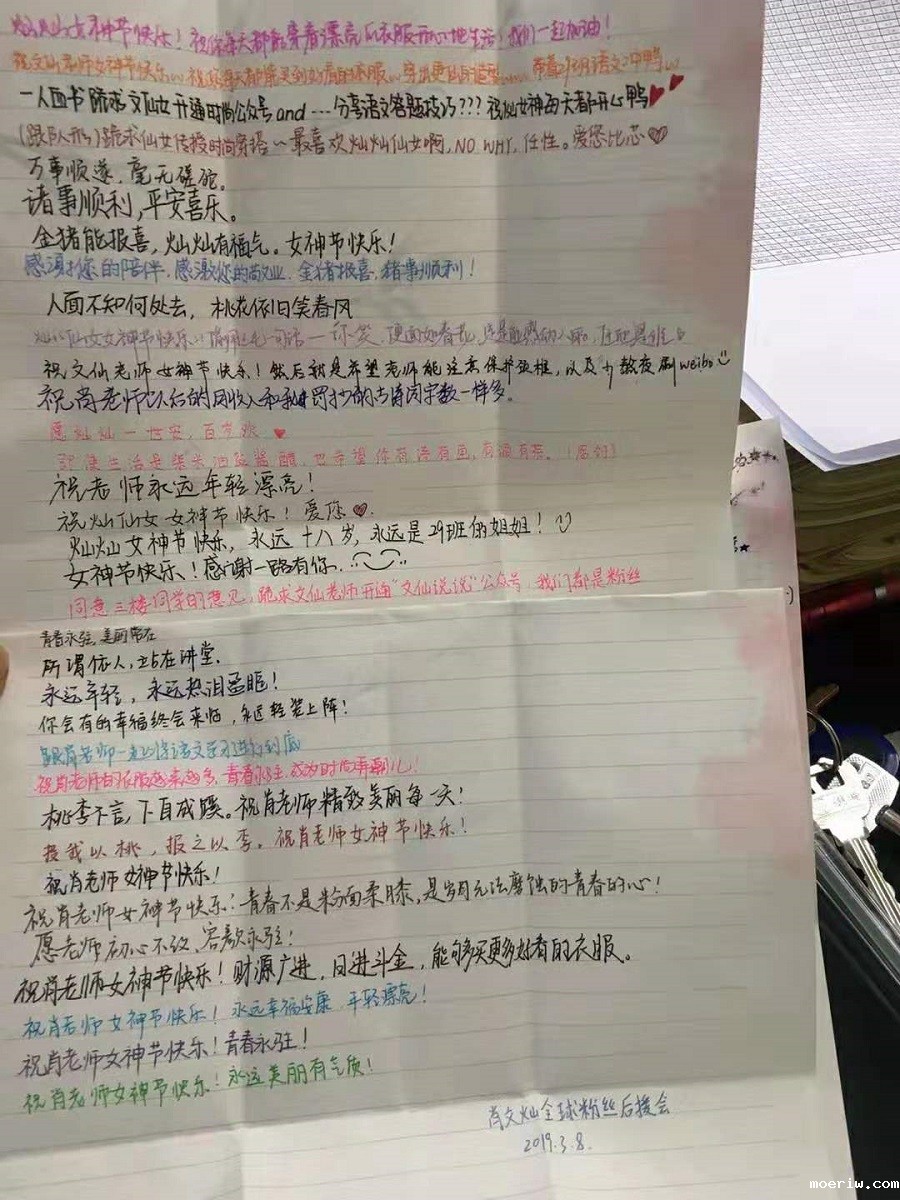 灿灿女神节快乐！祝你每天都能穿着漂亮的衣服开心地生活！我们一起加油！
祝文灿老师女神节快乐
一人血书跪求文仙女开通时尚公众号and……分享语文答题技巧？？？祝仙女神每天都开心鸭
(跟队形)跪求仙女传授时尚穿搭～最喜欢灿灿仙女啊,NO WHY,任性。爱您比芯
万事顺遂,毫无磋砣。
诸事顺利,平安喜乐。
金猪能报喜,灿灿有福气。女神节快乐！
感谢您的陪伴,感激您的敬业,金猪报喜,猪事顺利！
人面不知何处去,桃花依旧笑春风
灿灿仙女女神节快乐
祝文仙老师女神节快乐！然后就是希望老师能注意保护颈椎,以及少熬夜刷weibo
祝肖老师以后的月收入和我罚抄的古诗词字数一样多。
愿灿灿一世安,百岁欢
即使生活是柴米油盐酱醋,也希望你有诗有画,有酒有茶。
祝老师永远年轻漂亮！
祝灿仙女女神节快乐！爱您
灿灿女神节快乐,永远十八岁,永远是29班的姐姐！
女神节快乐！感谢一路有你.
同意三楼同学的意见,跪求文仙老师开通“文仙说说”公众号,我们都是粉丝
青春永驻,美丽常在
所谓依人,站在讲堂.
永远年轻,永远热泪盈眶！
你会有的幸福终会来临,永远轻装上阵！
跟肖老师一起将语文学习进行到底
祝肖老师的衣服越来越多,青春永驻,成为时尚弄潮儿！
桃李不言,下自成蹊。祝肖老师精致美丽每一天！
投我以桃,报之以李。祝肖老师女神节快乐！
祝肖老师女神节快乐！
祝肖老师女神节快乐:青春不是粉面柔膝,是岁月无法磨蚀的青春的心！
愿老师初心不改,容颜永驻！
祝肖老师女神节快乐！财源广进,日进斗金,能够买更多好看的衣服。
祝肖老师女神节快乐！永远幸福安康 年轻漂亮！
祝肖老师女神节快乐！青春永驻！
祝肖老师女神节快乐！永远美丽有气质！
肖文灿全球粉丝后援会
2019.3.8.
moeriw.com